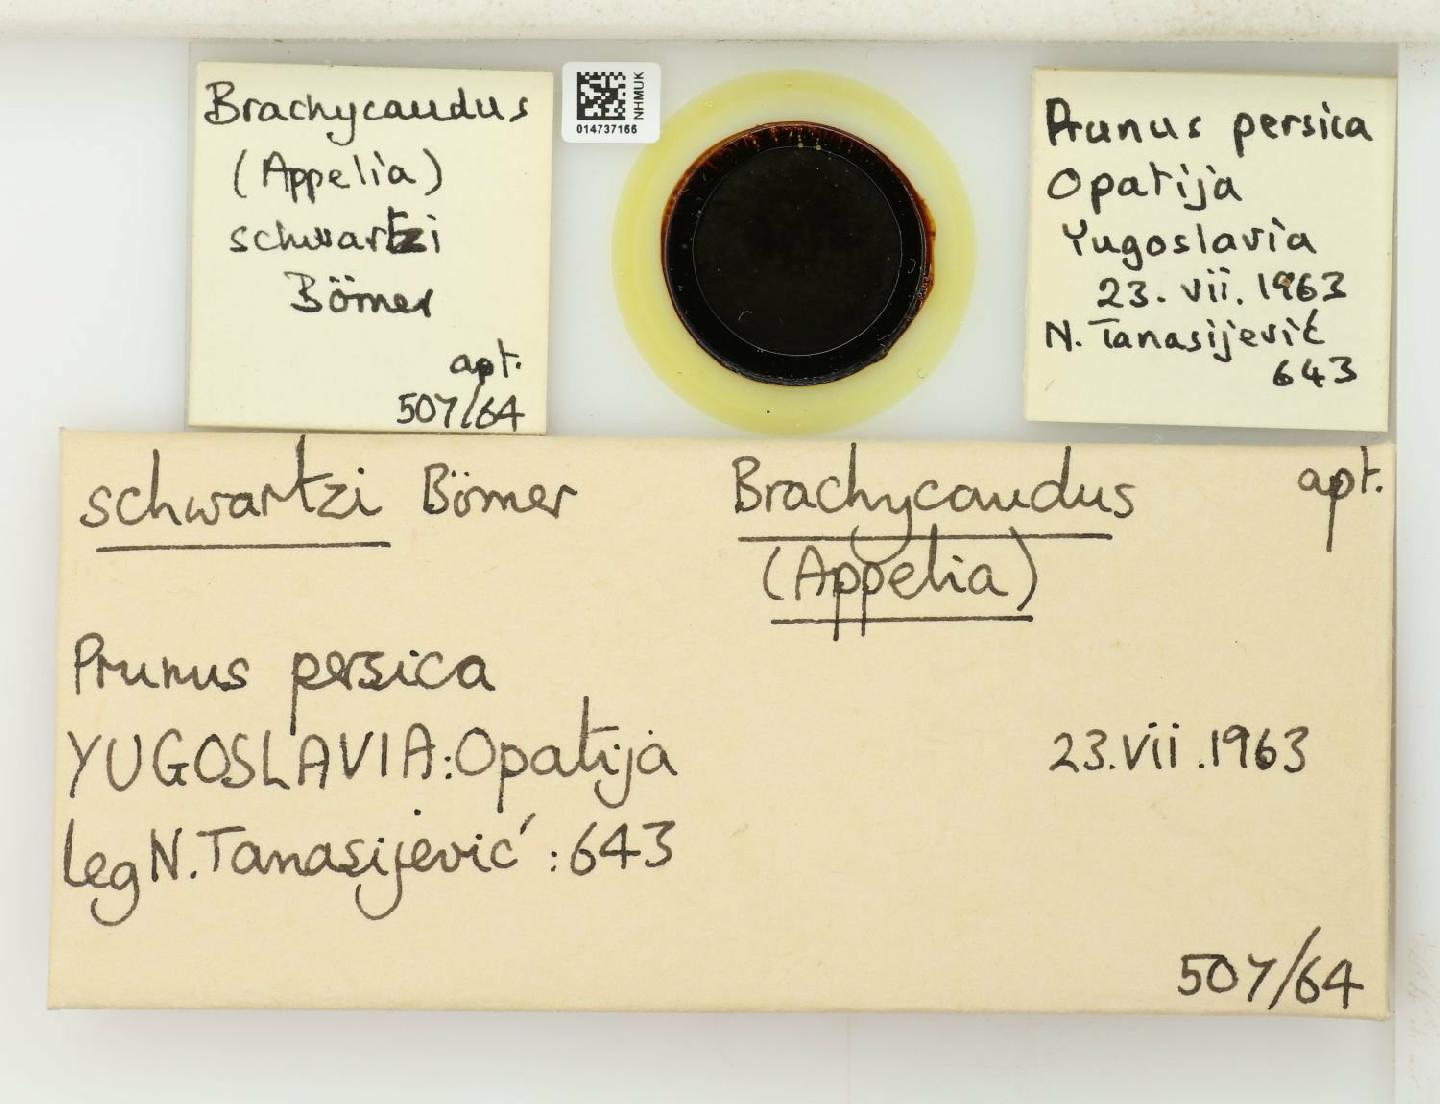 Brachycaudus
(Appelia)
schwartzi
Börner
apt.
507/64
NHMUK
014737166
Prunus persica
Opatija
Yugoslavia
23. vii. 1963
N. Tanasijević
643
schwartzi Börner Brachycaudus apt.
(Appelia)
Prunus persica
YUGOSLAVIA: Opatija 23.vii.1963
leg N. Tanasijević : 643
507/64